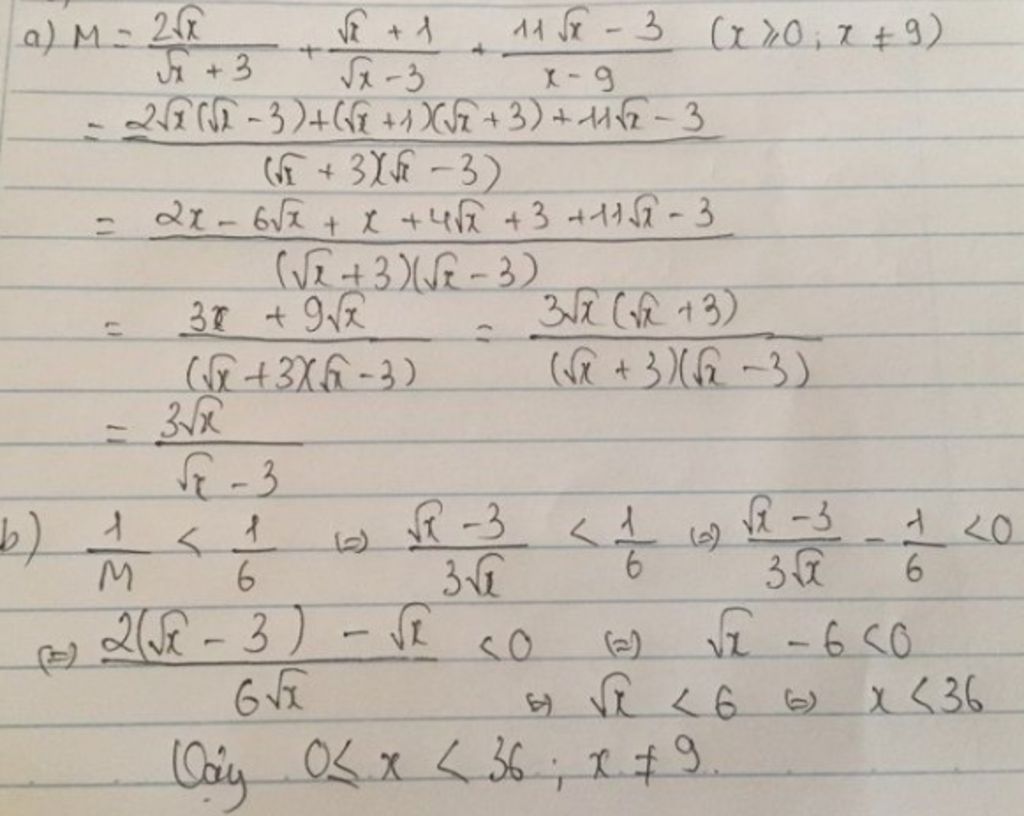 a) M = \frac{2\sqrt{x}}{\sqrt{x} + 3} + \frac{\sqrt{x} + 1}{\sqrt{x} - 3} + \frac{11\sqrt{x} - 3}{x - 9} (x ⩾ 0 ; x ≠ 9)
= \frac{2\sqrt{x}(\sqrt{x} - 3) + (\sqrt{x} + 1)(\sqrt{x} + 3) + 11\sqrt{x} - 3}{(\sqrt{x} + 3)(\sqrt{x} - 3)}
= \frac{2x - 6\sqrt{x} + x + 4\sqrt{x} + 3 + 11\sqrt{x} - 3}{(\sqrt{x} + 3)(\sqrt{x} - 3)}
= \frac{3x + 9\sqrt{x}}{(\sqrt{x} + 3)(\sqrt{x} - 3)} = \frac{3\sqrt{x}(\sqrt{x} + 3)}{(\sqrt{x} + 3)(\sqrt{x} - 3)}
= \frac{3\sqrt{x}}{\sqrt{x} - 3}
b) \frac{1}{M} < \frac{1}{6} ⇔ \frac{\sqrt{x} - 3}{3\sqrt{x}} < \frac{1}{6} ⇔ \frac{\sqrt{x} - 3}{3\sqrt{x}} - \frac{1}{6} < 0
⇔ \frac{2(\sqrt{x} - 3) - \sqrt{x}}{6\sqrt{x}} < 0 ⇔ \sqrt{x} - 6 < 0
⇔ \sqrt{x} < 6 ⇔ x < 36
Vậy 0 ≤ x < 36 ; x ≠ 9.